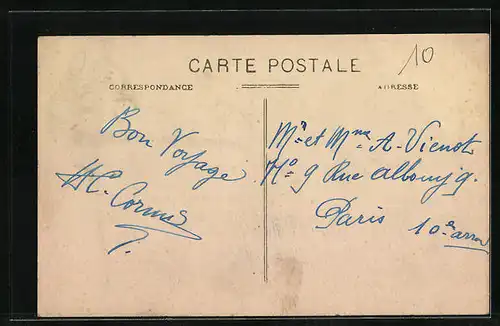 CARTE POSTALE
10
CORRESPONDANCE
ADRESSE
Bon Voyage
HC.
Mr et Mme A. Vienot
No 9 Rue
Paris
10e arron